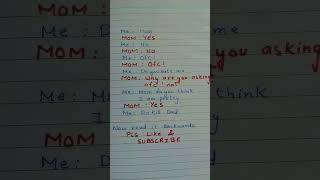 Me: Mom
MOM: YES
Me: No
MOM: No
Me: Ofc!
MOM: Ofc!
Me: Do you hate me
MOM: Why are you asking
ofc! not
Me: Mom do you think
I am pretty
MOM: Yes
Me: Dad
Now read it backwards
PLS Like &
SUBSCRIBE
you me
asking